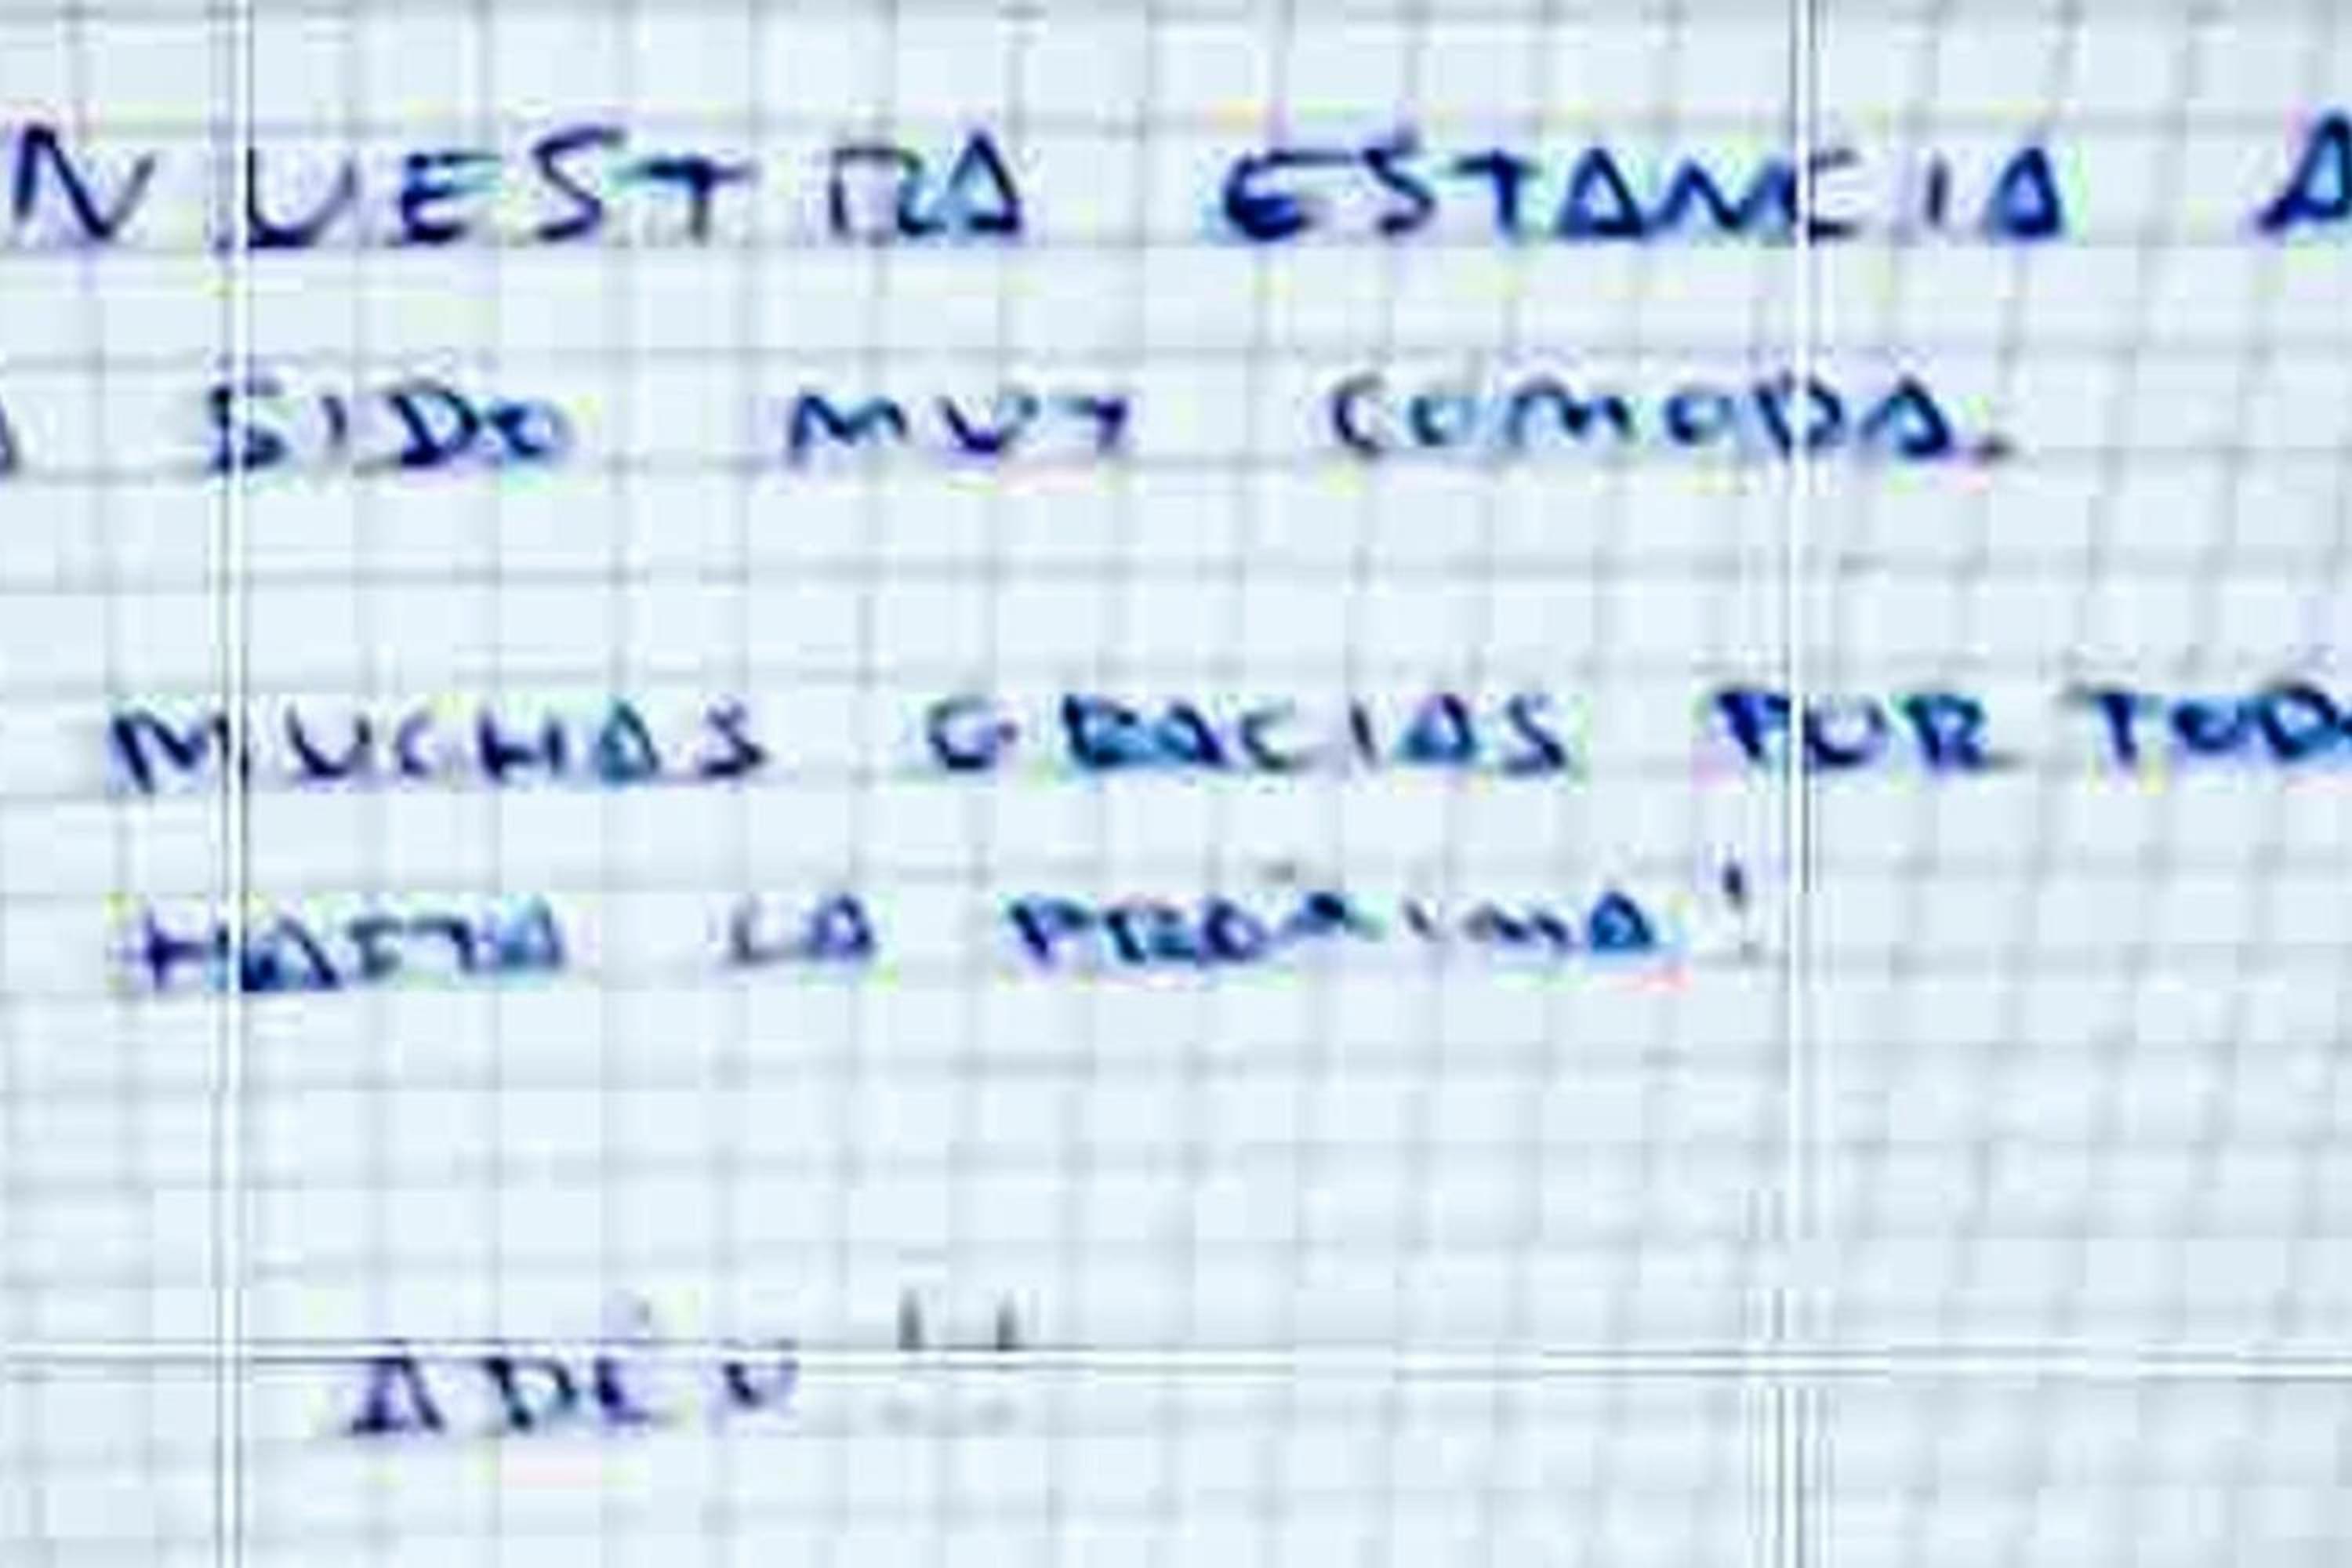 NUESTRA ESTANCIA A
A SIDO MUY COMODA.
MUCHAS GRACIAS POR TOD
HASTA LA PRÓXIMA!
ADÉU !!